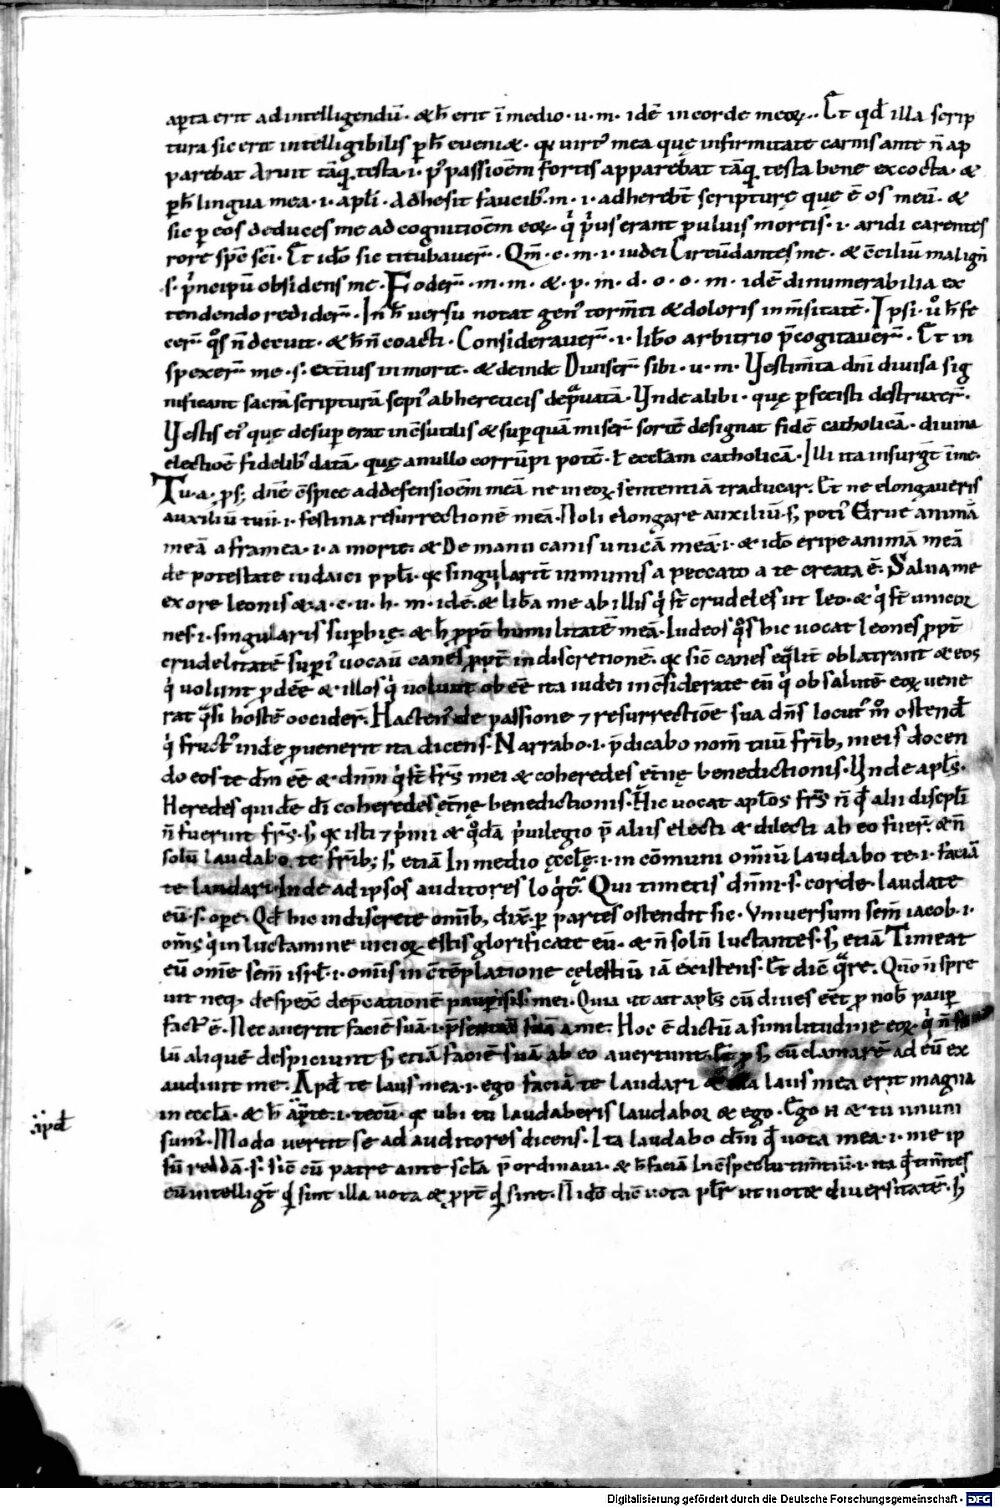 aꝑta erit ad intelligendū · & h̄ erit ī medio · u · m · idē in corde meoꝝ · Et qd̄ illa scrip
tura sic erit intelligibilis ꝑ h̄ eveni& · qꝛ virt᷒ mea que infirmitate carnis ante n̄ ap
parebat Aruit tāq̄ testa · i · p᷒ passioēm fortis apparebat tāq̄ testa bene excocta · &
ꝑ h̄ lingua mea · i · apl̄i · Adhesit faucib᷒ · m · i · adherebn̄t scripturę que ē os meū · &
sic ꝑ eos deduces me ad cognitioēm eoꝝ · q̇ ṗus erant pulvis mortis · i · aridi carentes
rore spe sc̄i · Et idō sic titubaver̄ · Qm̄ · c · m · i · iudei Circūdantes me · & c̄ciliū malign̄
· s · ṗncipū obsidens me · Foder̄ · m · m · & p · m · d · o · o · m · idē dinumerabilia ex
tendendo redider̄ · In h̄ versu notat gen᷒ torm̄ti & doloris inm̄sitatē · Ipsi · v̊ h̄ fe
cer̄ q̊s n̄ decuit · & h̄ n̄ coacti · Consideraver̄ · i · lib̄o arbitrio p̄cogitaver̄ · Et in
spexer̄ me · s · ext̄ius in morte · & deinde Diviser̄ sibi · u · m · Vestim̄ta dn̄i divisa sig
nificant sacrā scripturā sepi᷒ ab hereticis depͣvatā · Vnde alibi · quę ꝑfecisti destruxer̄ ·
Vestis ei᷒ quę desuꝑ erat inc̄sutilis & suꝑ quā miser̄ sortē designat fidē catholicā · divina
electioē fidelib᷒ datā · quę a nullo corrūpi potē · t̄ eccl̄am catholicā · Illi ita insurgt̄ ī me ·
Tu · a · ꝓs; dn̄e c̄spice ad defensioēm meā ne in eoꝝ sententiā traducar · Et ne elongaveris
auxiliū tuū · i · festina resurrectionē meā · Noli elongare auxiliū · s; poti᷒ Erue animā
meā a framea · i · a morte · & De manu canis unicā meā · i · & idō eripe animā meā
de potestate iudaici ppl̄i · qꝛ singularit̄ inmunis a peccato a te creata ē · Salva me
ex ore leonis & · a · c · u · h · m · idē · & lib̄a me ab illis q̇ st̄ crudeles ut leo · & q̇ st̄ unicor
nes · i · singularis suꝑbię · & h̄ ꝓpt̄ humilitatē meā · Iudeos q̊s hic vocat leones ꝓpt̄
crudelitatē suꝑi᷒ vocav̄ canes ꝓpt̄ indiscretionē · qꝛ sic̄ canes eq̄lit̄ oblatrant & eos
q̇ volunt ꝓdēe & illos q̇ volunt obēe ita iudei inc̄siderate eū q̇ ob salutē eoꝝ vene
rat qͣsi hostē occider̄ · Hacten᷒ de passione ⁊ resurrectiōe sua dn̄s locut᷒ m̊ ostend̄
q̇ fruct᷒ inde ꝓvenerit ita dicens · Narrabo · i · p̄dicabo nom̄ tuū fr̄ib, meis docen
do eos te dm̄ ēe & dnm̄ q̇ st̄ fr̄s mei & coheredes et̄nę benedictionis · Vnde apl̄s ·
Heredes quidē dī coheredes et̄nę benedictionis · Hic vocat apl̄os fr̄s n̄ q̄ alii discipl̄i
n̄ fuerunt fr̄s · s; qꝛ isti ⁊ ṗmi & q̊dā ṗvilegio p̄ aliis electi & dilecti ab eo fuer̄ · & n̄
solū laudabo te fr̄ib; s; etiā In medio ęccl̄ę · i · in cōmuni om̄iū laudabo te · i · faciā
te laudari · Inde ad ipsos auditores loq̇t᷑ · Qui timetis dn̄m · s · corde · laudate
eū · s · oꝑe · Qd̄ hic indiscrete omīb, dix̄ · ꝑ partes ostendit sic · Vniversum sem̄ iacob · i ·
om̄s q̇ in luctamine vicioꝝ estis glorificate eū · & n̄ solū luctantes · s; etiā Timeat
eū om̄e sem̄ isrl̄ · i · om̄is in c̄tēplatione cęlestiū iā existens · Et dic̄ qͣre · Qn̄o n̄ spre
vit neq, despex̄ dep̄cationē pauꝑis mei · Quia ut ait apl̄s cū dives ēet ꝓ nob̄ pauꝑ
fact᷒ ē · Nec avertit faciē suā · i · p̄sentiā suā a me · Hoc ē dictū a similitudine eoꝝ · q̇ n̄ so
lū aliquē despiciunt s; etiā faciē suā ab eo avertunt · Et ꝓ s; cū clamarē ad eū ex
audivit me · Apd̄ te laus mea · i · ego faciā te laudari & illa laus mea erit magna
in eccl̄a · & h̄ aꝑte · i · tecū · qꝛ ubi tu laudaberis laudaboꝛ & ego · Ego n & tu unum
sum᷒ · Modo vertit se ad auditores dicens · Ita laudabo dm̄ q̄ vota mea · i · me ip
sū reddā · s · sic̄ cū patre ante scl̄a p̄ordinavi · & h̄ faciā In c̄spectu tim̄tiū · i · ita q̄ tim̄tes
eū intelligt̄ q̄ sint illa vota & ꝓpt̄ q̄ sint · N idō dic̄ vota pl̄r ut not& diversitatē · s;
·ipd̄
Digitalisierung gefördert durch die Deutsche Forschungsgemeinschaft - DFG